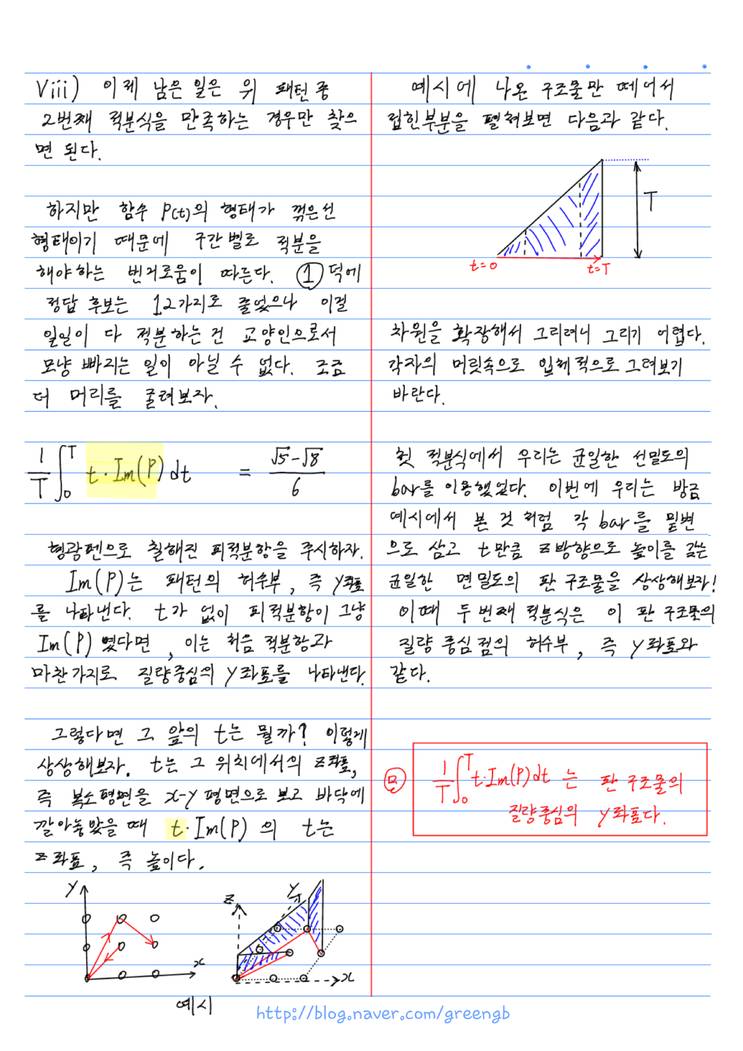 viii) 이제 남은 일은 위 패턴 중
2번째 적분식을 만족하는 경우만 찾으
면 된다.
하지만 함수 P(t)의 형태가 꺾은선
형태이기 때문에 구간별로 적분을
해야하는 번거로움이 따른다. ① 덕에
정답 후보는 12가지로 줄었으나 이걸
일일이 다 적분하는 건 교양인으로서
모냥 빠지는 일이 아닐 수 없다. 조금
더 머리를 굴려보자.
1/T ∫₀ᵀ t·Im(P) dt = (√5-√8)/6
형광펜으로 칠해진 피적분항을 주시하자.
Im(P)는 패턴의 허수부, 즉 y좌표
를 나타낸다. t가 없이 피적분항이 그냥
Im(P) 였다면, 이는 처음 적분항과
마찬가지로 질량중심의 y좌표를 나타낸다.
그렇다면 그 앞의 t는 뭘까? 이렇게
상상해보자. t는 그 위치에서의 z좌표,
즉 복소평면을 x-y 평면으로 보고 바닥에
깔아놓았을 때 t·Im(P) 의 t는
z좌표, 즉 높이다.
y
x
z
y
x
예시
예시에 나온 구조물만 떼어서
접힌부분을 펼쳐보면 다음과 같다.
T
t=0
t=T
차원을 확장해서 그리려니 그리기 어렵다.
각자의 머릿속으로 입체적으로 그려보기
바란다.
첫 적분식에서 우리는 균일한 선밀도의
bar를 이용했었다. 이번에 우리는 방금
예시에서 본 것처럼 각 bar를 밑변
으로 삼고 t만큼 z방향으로 높이를 갖는
균일한 면밀도의 판 구조물을 상상해보자!
이때 두번째 적분식은 이 판 구조물의
질량 중심점의 허수부, 즉 y좌표와
같다.
② 1/T ∫₀ᵀ t·Im(P) dt 는 판 구조물의
질량중심의 y좌표다.
http://blog.naver.com/greengb